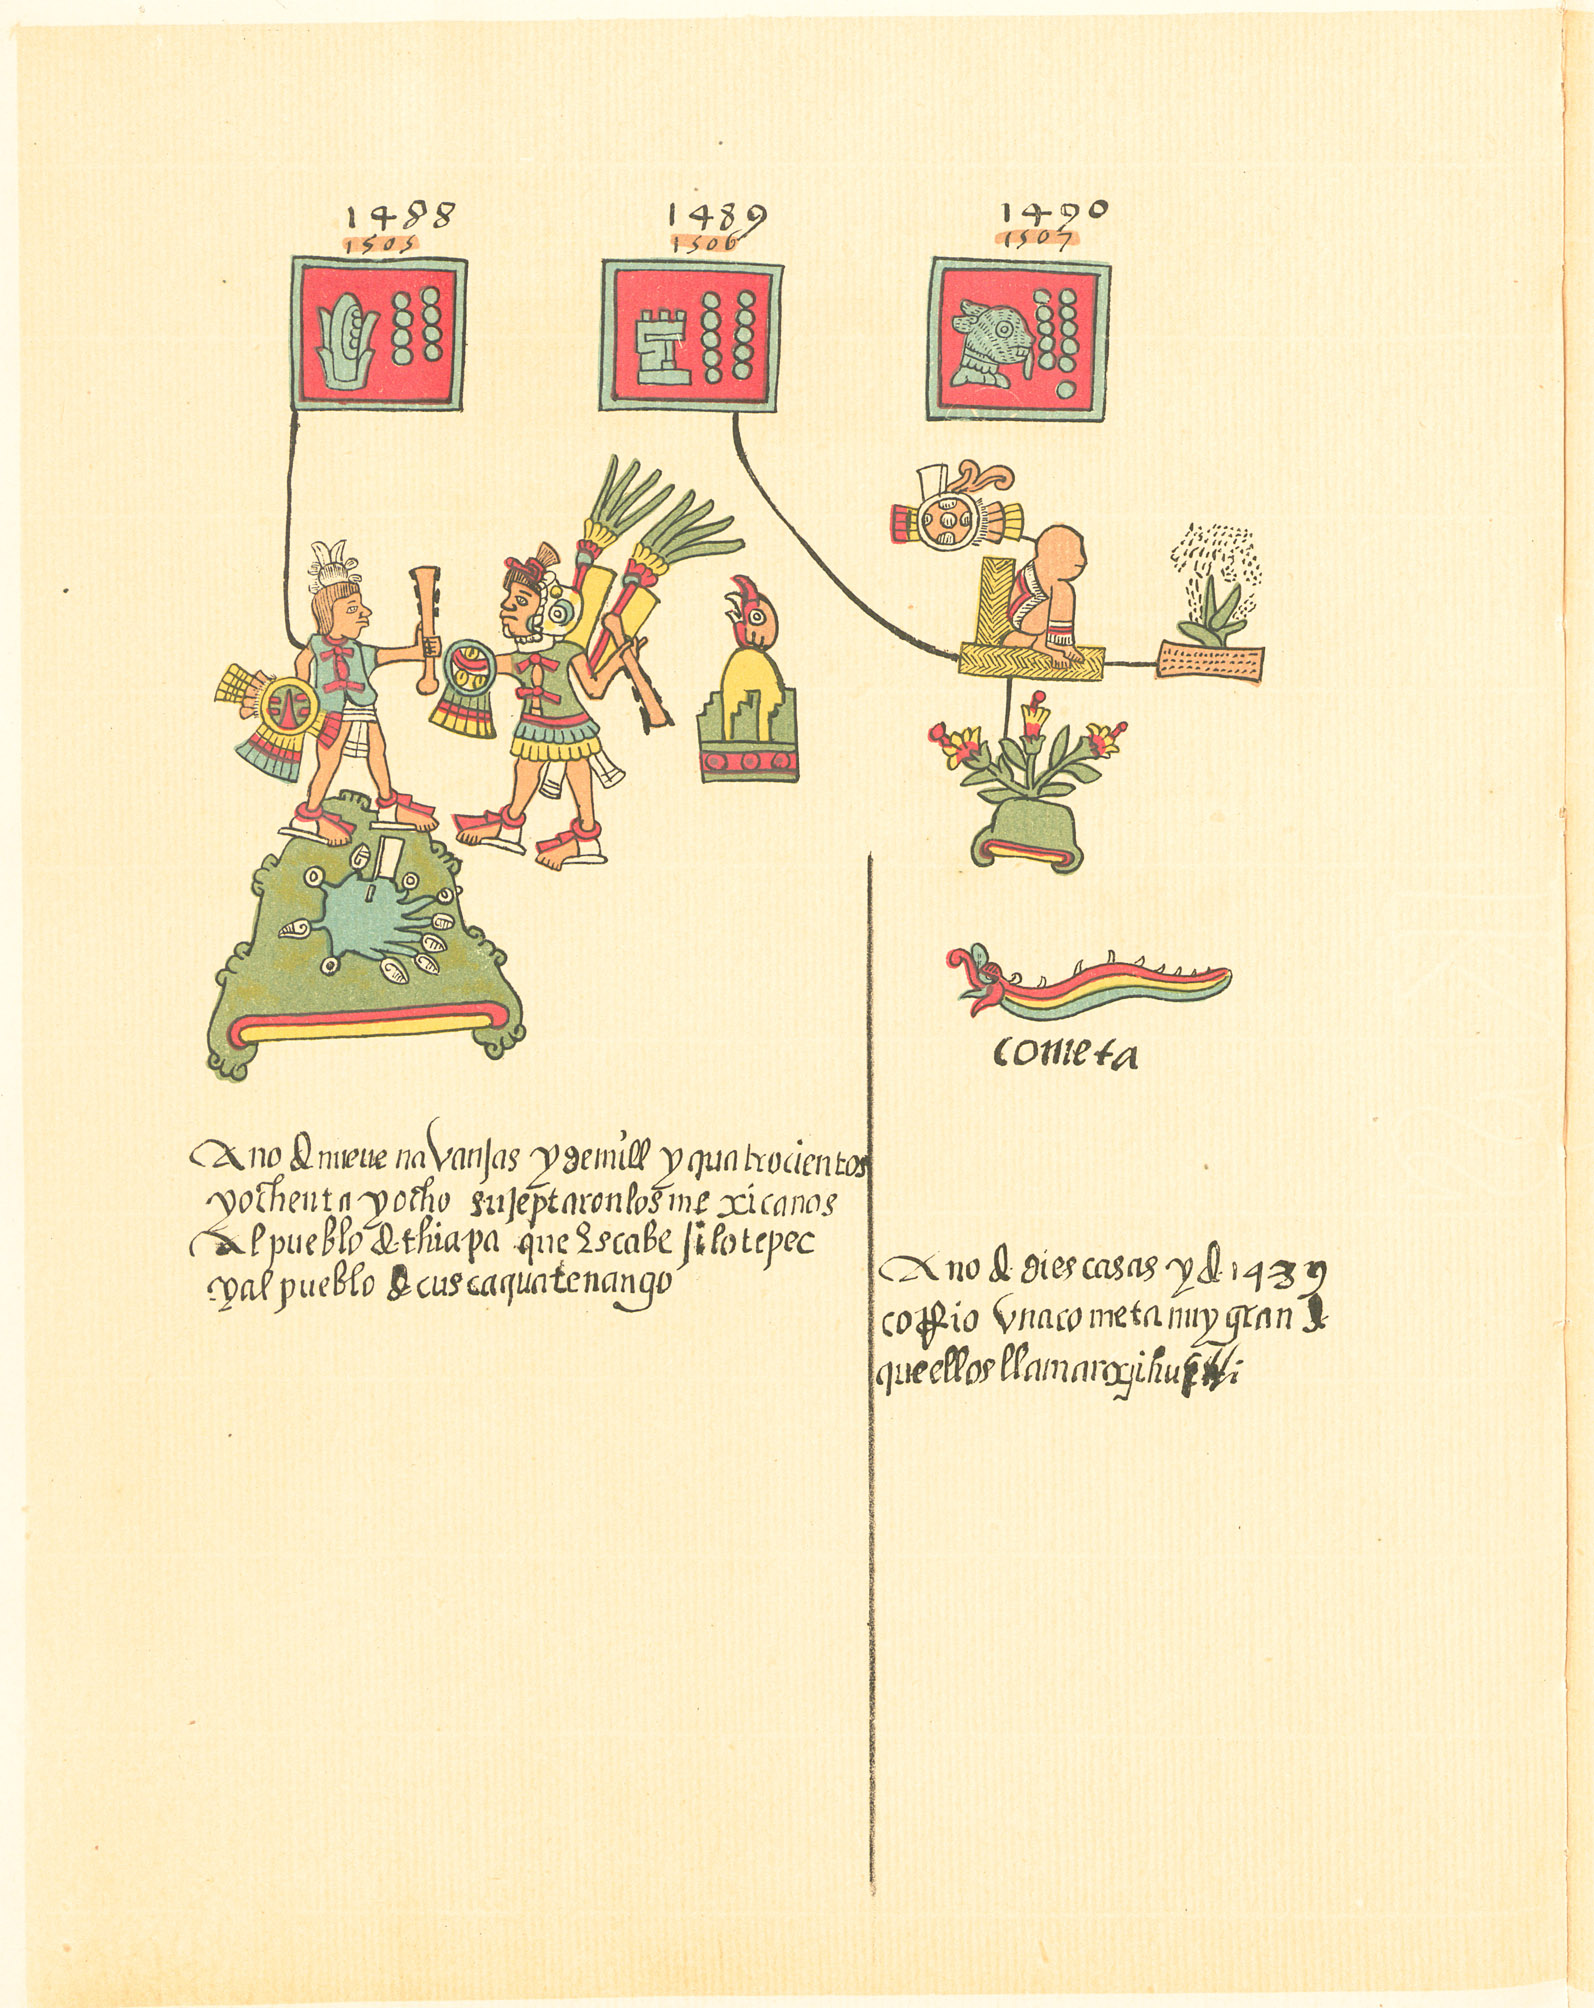 1488
1505
1489
1506
1490
1507
cometa
Año de nueve navanjas y de mill y quatrocientos
y ochenta y ocho sujeptaron los mexicanos
Al pueblo de chiapa que es cabe silotepec
y al pueblo de cuscaquatenango
Año de dies casas y de 1489
corrio vna cometa muy grande
que ellos llamar